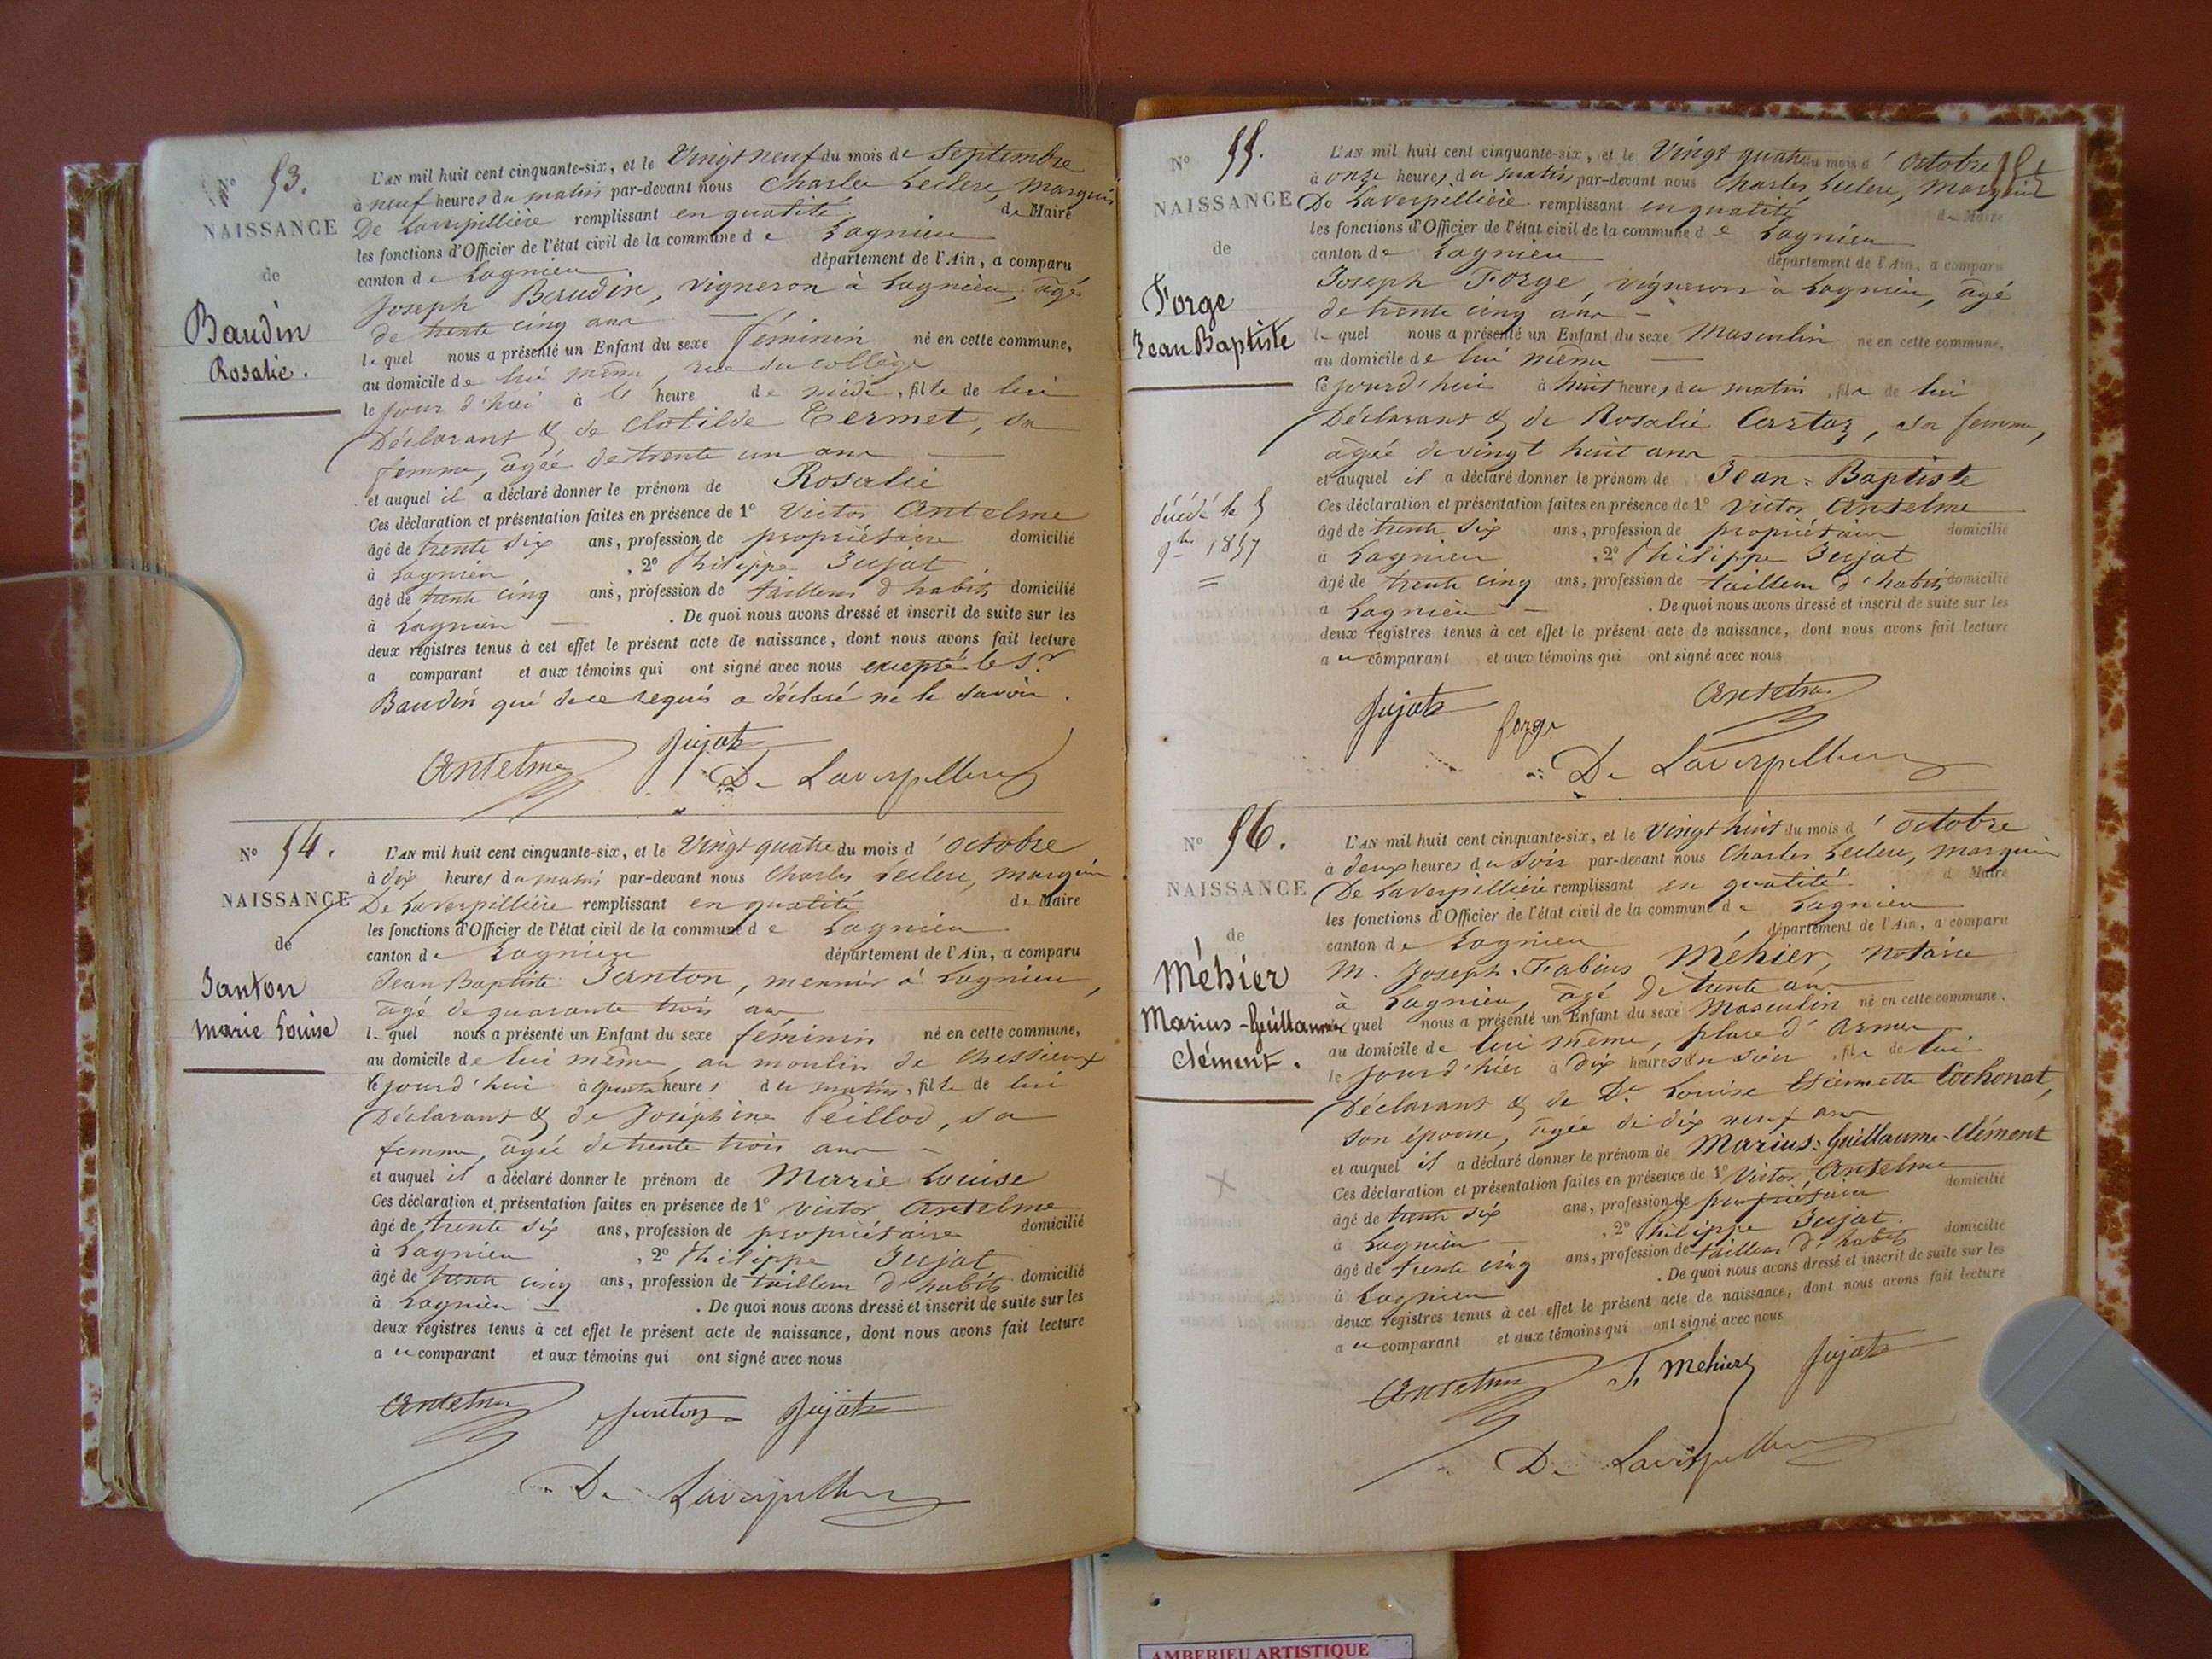 N° 53.
NAISSANCE
de
Baudin
Rosalie.
L'AN mil huit cent cinquante-six, et le Vingt neuf du mois de Septembre
à neuf heures du matin par-devant nous Charles Leclerc, Marquis
De Laverpillière remplissant en qualité de Maire
les fonctions d'Officier de l'état civil de la commune de Lagnieu
canton de Lagnieu département de l'Ain, a comparu
Joseph Baudin, vigneron à Lagnieu, âgé
de trente cinq ans
lequel nous a présenté un Enfant du sexe féminin né en cette commune,
au domicile de lui même, rue du collège
le jour d'hui à heure de midi, fille de lui
Déclarant & de Clotilde Termet, sa
femme, âgée de trente un ans
et auquel il a déclaré donner le prénom de Rosalie
Ces déclaration et présentation faites en présence de 1° Victor Antelme
âgé de trente six ans, profession de propriétaire domicilié
à Lagnieu, 2° Philippe Jujat
âgé de trente cinq ans, profession de tailleur d'habits domicilié
à Lagnieu . De quoi nous avons dressé et inscrit de suite sur les
deux registres tenus à cet effet le présent acte de naissance, dont nous avons fait lecture
a comparant et aux témoins qui ont signé avec nous excepté le Sr
Baudin qui de ce requis a déclaré ne le savoir.
Antelme Jujat
De Laverpillière
N° 54.
NAISSANCE
de
Janton
Marie Louise
L'AN mil huit cent cinquante-six, et le Vingt quatre du mois d'octobre
à dix heures du matin par-devant nous Charles Leclerc, marquis
De Laverpillière remplissant en qualité de Maire
les fonctions d'Officier de l'état civil de la commune de Lagnieu
canton de Lagnieu département de l'Ain, a comparu
Jean Baptiste Janton, meunier à Lagnieu,
âgé de quarante trois ans
lequel nous a présenté un Enfant du sexe féminin né en cette commune,
au domicile de lui même, au moulin de
le jourd'hui à quatre heures du matin, fille de lui
Déclarant & de Joséphine Peillod, sa
femme, âgée de trente trois ans
et auquel il a déclaré donner le prénom de Marie Louise
Ces déclaration et présentation faites en présence de 1° Victor Antelme
âgé de trente six ans, profession de propriétaire domicilié
à Lagnieu, 2° Philippe Jujat
âgé de trente cinq ans, profession de tailleur d'habits domicilié
à Lagnieu . De quoi nous avons dressé et inscrit de suite sur les
deux registres tenus à cet effet le présent acte de naissance, dont nous avons fait lecture
au comparant et aux témoins qui ont signé avec nous
Antelme Janton Jujat
De Laverpillière
N° 55.
NAISSANCE
de
Forge
Jean Baptiste
décédé le 5
9bre 1857
L'AN mil huit cent cinquante-six, et le Vingt quatre du mois d'octobre
à onze heures du matin par-devant nous Charles Leclerc, Marquis
De Laverpillière remplissant en qualité de Maire
les fonctions d'Officier de l'état civil de la commune de Lagnieu
canton de Lagnieu département de l'Ain, a comparu
Joseph Forge, vigneron à Lagnieu, âgé
de trente cinq ans
lequel nous a présenté un Enfant du sexe Masculin né en cette commune,
au domicile de lui même
le jourd'hui à huit heures du matin, fils de lui
Déclarant & de Rosalie, sa femme,
âgée de vingt huit ans
et auquel il a déclaré donner le prénom de Jean-Baptiste
Ces déclaration et présentation faites en présence de 1° Victor Antelme
âgé de trente six ans, profession de propriétaire domicilié
à Lagnieu, 2° Philippe Jujat
âgé de trente cinq ans, profession de tailleur d'habits domicilié
à Lagnieu . De quoi nous avons dressé et inscrit de suite sur les
deux registres tenus à cet effet le présent acte de naissance, dont nous avons fait lecture
au comparant et aux témoins qui ont signé avec nous
Jujat forge Antelme
De Laverpillière
N° 56.
NAISSANCE
de
Méhier
Marius-Guillaume
Clément.
L'AN mil huit cent cinquante-six, et le Vingt huit du mois d'octobre
à deux heures du soir par-devant nous Charles Leclerc, marquis
De Laverpillière remplissant en qualité d Maire
les fonctions d'Officier de l'état civil de la commune de Lagnieu
canton de Lagnieu département de l'Ain, a comparu
M. Joseph-Fabius Méhier, notaire
à Lagnieu, âgé de trente ans
lequel nous a présenté un Enfant du sexe Masculin né en cette commune,
au domicile de lui même, place d'armes
le jourd'hier à dix heures du soir, fils de lui
Déclarant & de De Louise Etiennette Cochonat,
son épouse, âgée de dix neuf ans
et auquel il a déclaré donner le prénom de Marius-Guillaume-Clément
Ces déclaration et présentation faites en présence de 1° Victor Antelme
âgé de trente six ans, profession de propriétaire domicilié
à Lagnieu, 2° Philippe Jujat.
âgé de trente cinq ans, profession de tailleur d'habits domicilié
à Lagnieu . De quoi nous avons dressé et inscrit de suite sur les
deux registres tenus à cet effet le présent acte de naissance, dont nous avons fait lecture
au comparant et aux témoins qui ont signé avec nous
Antelme F. Mehier Jujat
De Laverpillière
AMBERIEU ARTISTIQUE